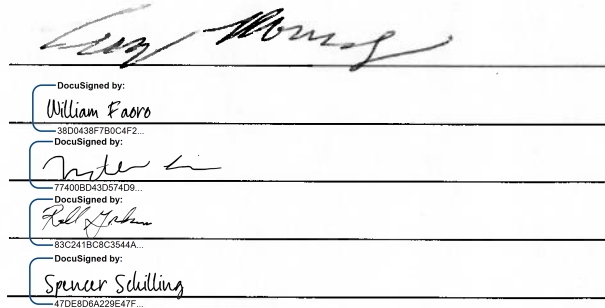 DocuSigned by:
William Faoro
38D0438F7B0C4F2...
DocuSigned by:
77400BD43D574D9...
DocuSigned by:
83C241BC8C3544A...
DocuSigned by:
Spencer Schilling
47DE8D6A229E47F...